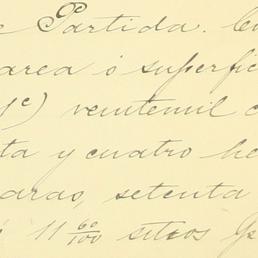 e Partida. Cu
area ó superfic
1º) veintemil c
ta y cuatro he
aras, setenta
11 60/100 sitios